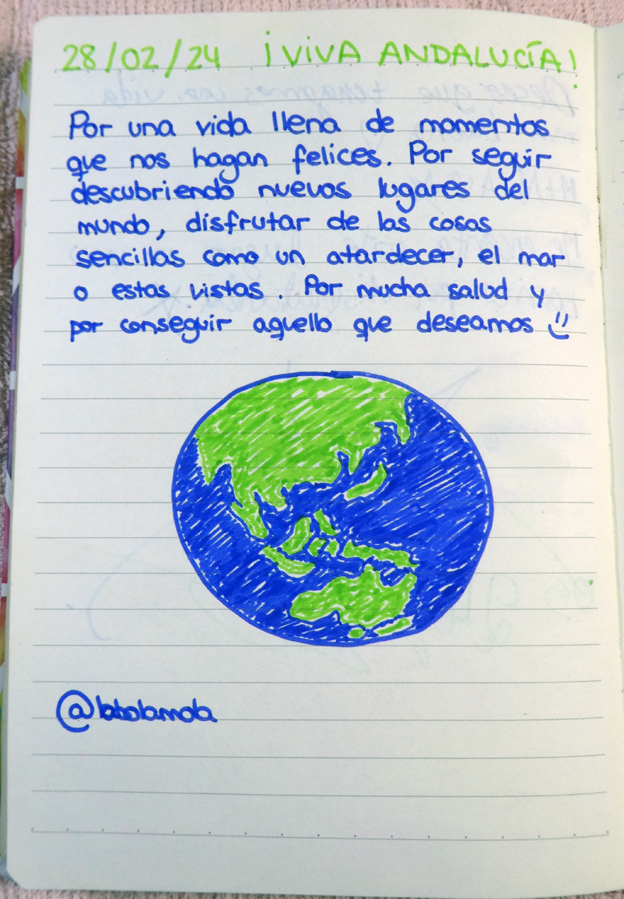 28/02/24 ¡VIVA ANDALUCÍA!
Por una vida llena de momentos
que nos hagan felices. Por seguir
descubriendo nuevos lugares del
mundo, disfrutar de las cosas
sencillas como un atardecer, el mar
o estas vistas. Por mucha salud y
por conseguir aquello que deseamos
@labolamola